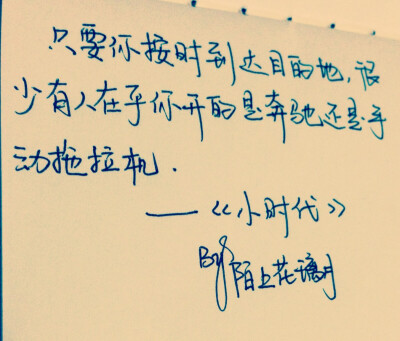 只要你按时到达目的地,很
少有人在乎你开的是奔驰还是手
动拖拉机.
——《小时代》
By 陌上花璃月